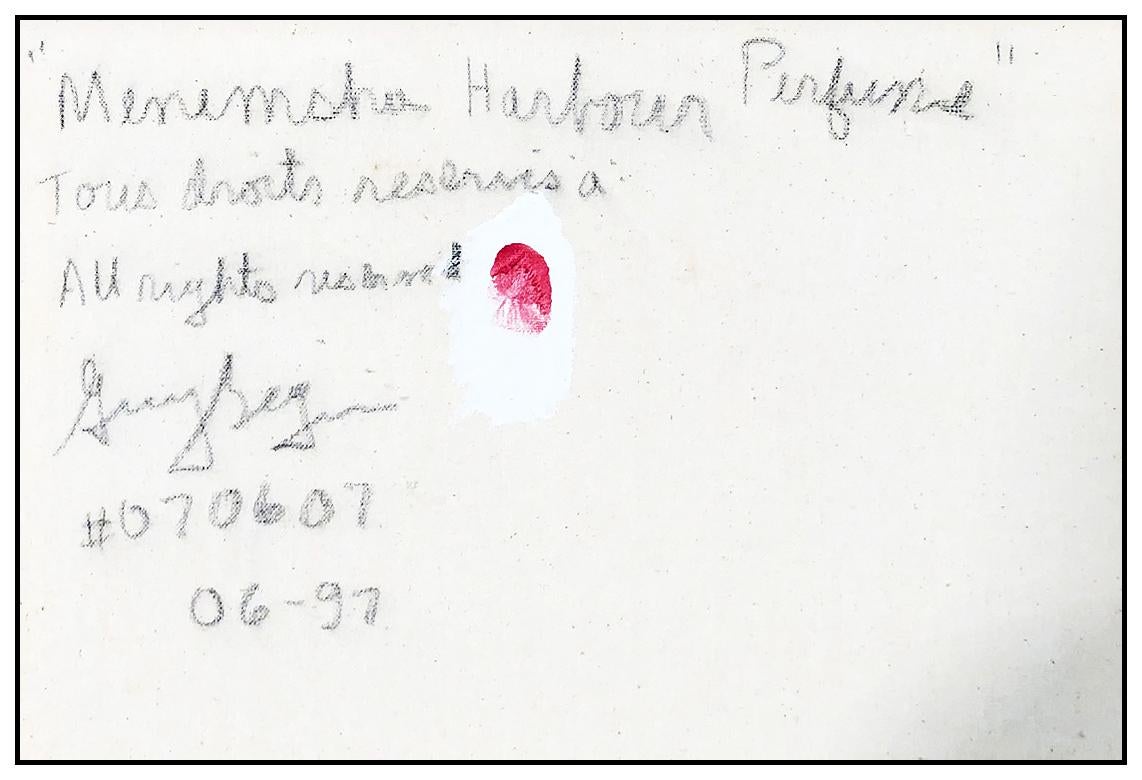 "Menemsha Harbour Perfume"
Tous droits reservés à
All rights reserve
#070607
06-97